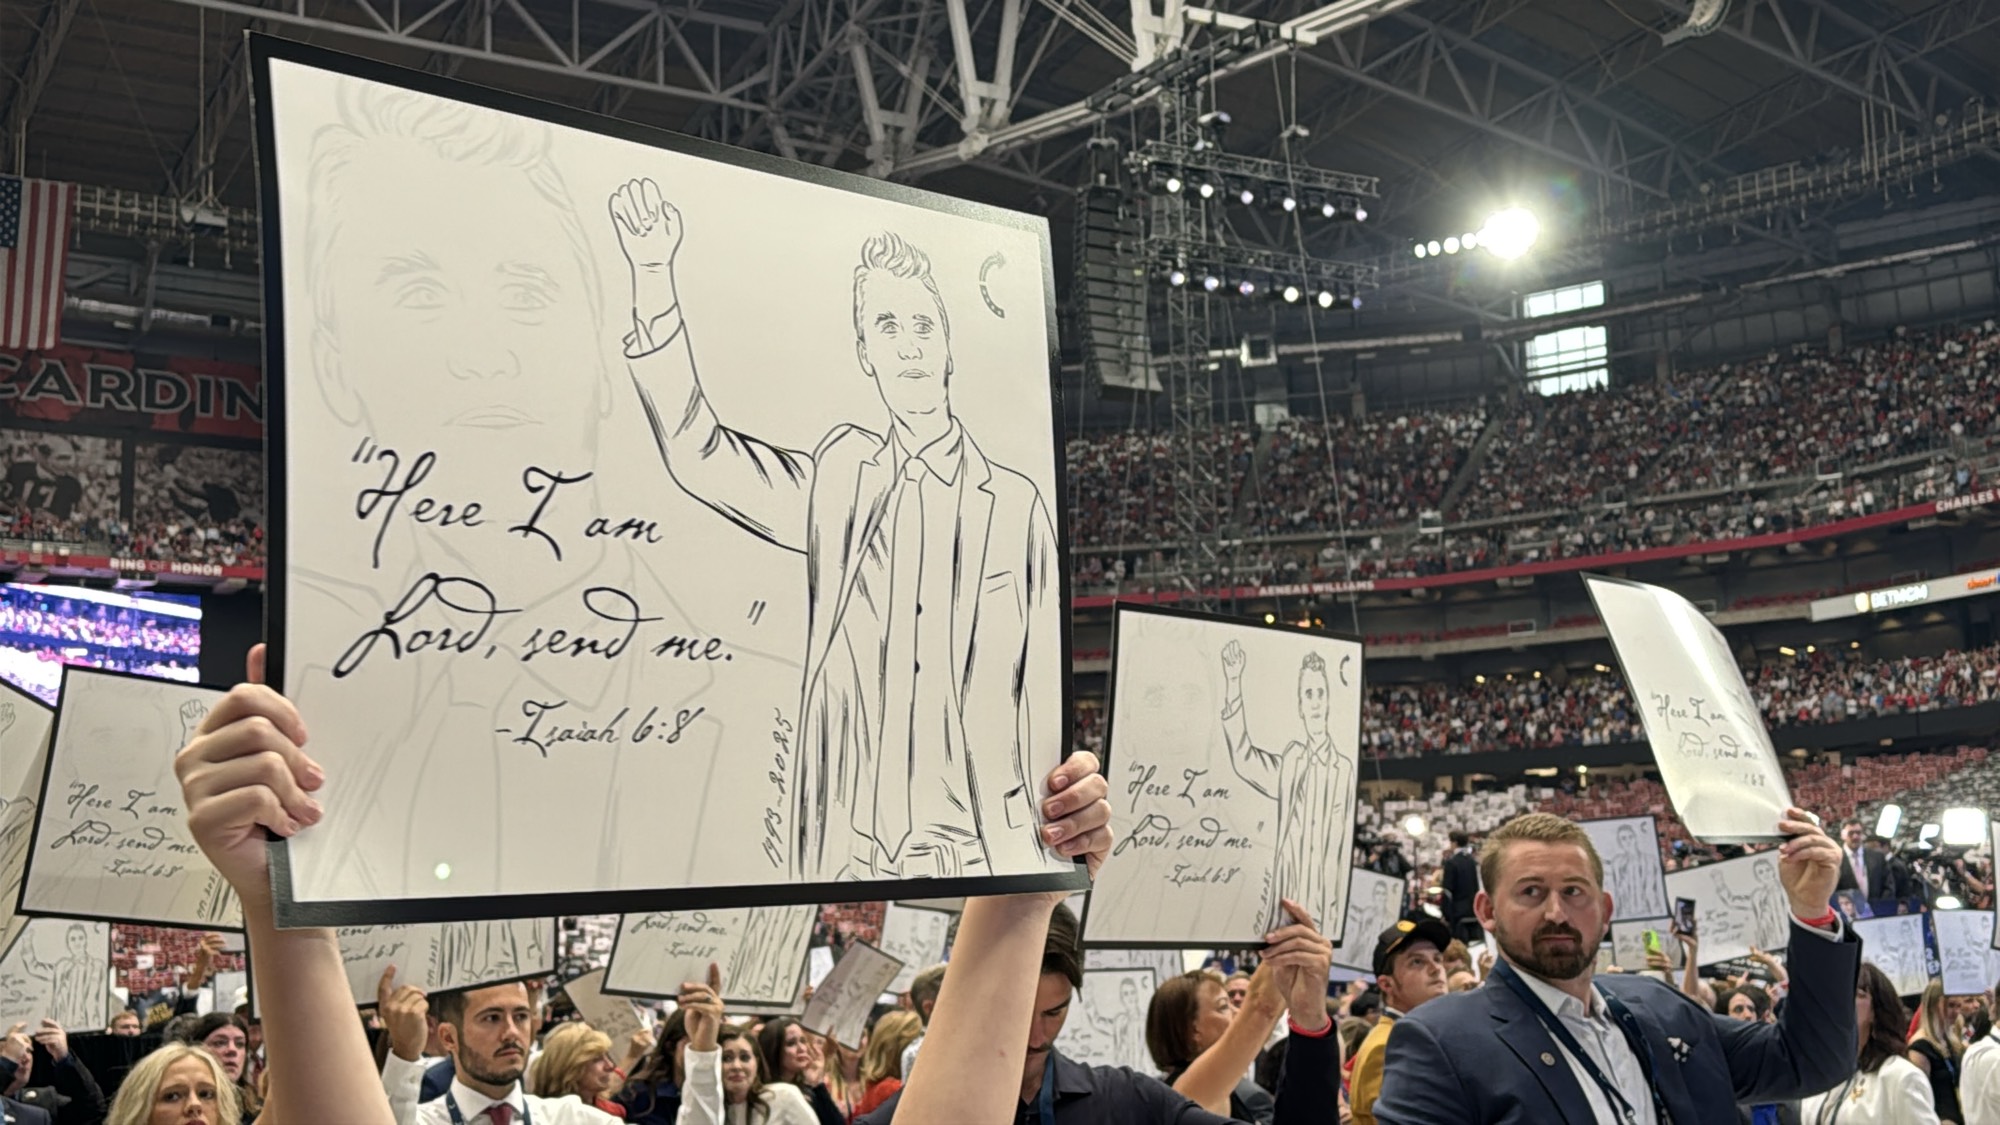 CARDIN
RING OF HONOR
"Here I am
Lord, send me."
-Isaiah 6:8
1993-2025
CHARLES
AENEAS WILLIAMS
BETMGM
"Here I am
Lord, send me."
-Isaiah 6:8
1993-2025
Here I am
Lord, send me
6:8
"Here I am
Lord, send me.
-Isaiah 6:8
1993-2025
Lord, send me."
-Isaiah 6:8